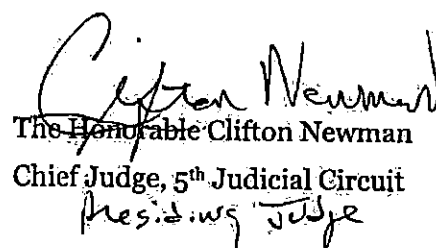 Clifton Newman
The Honorable Clifton Newman
Chief Judge, 5th Judicial Circuit
Presiding Judge